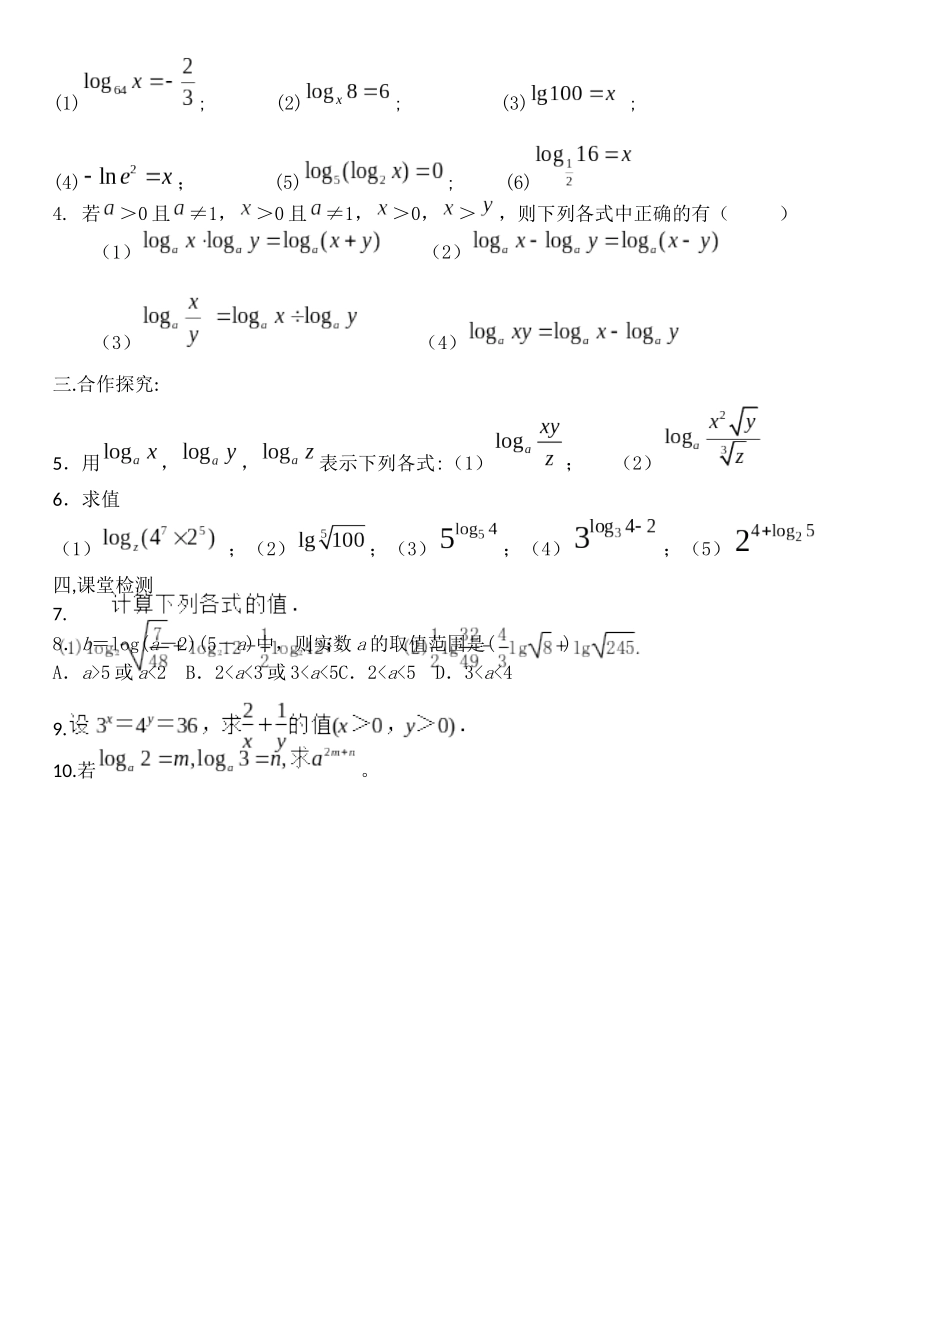 (1) log₆₄ x = - 2/3 ; (2) logₓ 8 = 6 ; (3) lg100 = x ;
(4) - ln e² = x ； (5) log₅(log₂ x) = 0 ; (6) log_{1/2} 16 = x
4. 若 a >0 且 a ≠1， x >0 且 a ≠1， x >0， x > y ，则下列各式中正确的有（ ）
（1） logₐ x · logₐ y = logₐ(x + y) （2） logₐ x - logₐ y = logₐ(x - y)
（3） logₐ x/y = logₐ x ÷ logₐ y （4） logₐ xy = logₐ x - logₐ y
三.合作探究:
5．用 logₐ x ，logₐ y ，logₐ z 表示下列各式:（1） logₐ xy/z ； （2） logₐ x²√y/∛z
6．求值
（1） log_z(4⁷×2⁵) ；（2） lg ⁵√100 ；（3） 5^{log₅4} ；（4） 3^{log₃4-2} ；（5） 2^{4+log₂5}
四,课堂检测
7. 计算下列各式的值．
8．b＝log(a－2)(5－a)中，则实数 a 的取值范围是( )
A．a>5 或 a<2 B．2<a<3 或 3<a<5C．2<a<5 D．3<a<4
9.设 3ˣ＝4ʸ＝36，求2/x＋1/y的值(x＞0，y＞0)．
10.若 logₐ 2 = m,logₐ 3 = n,求a^{2m+n} 。